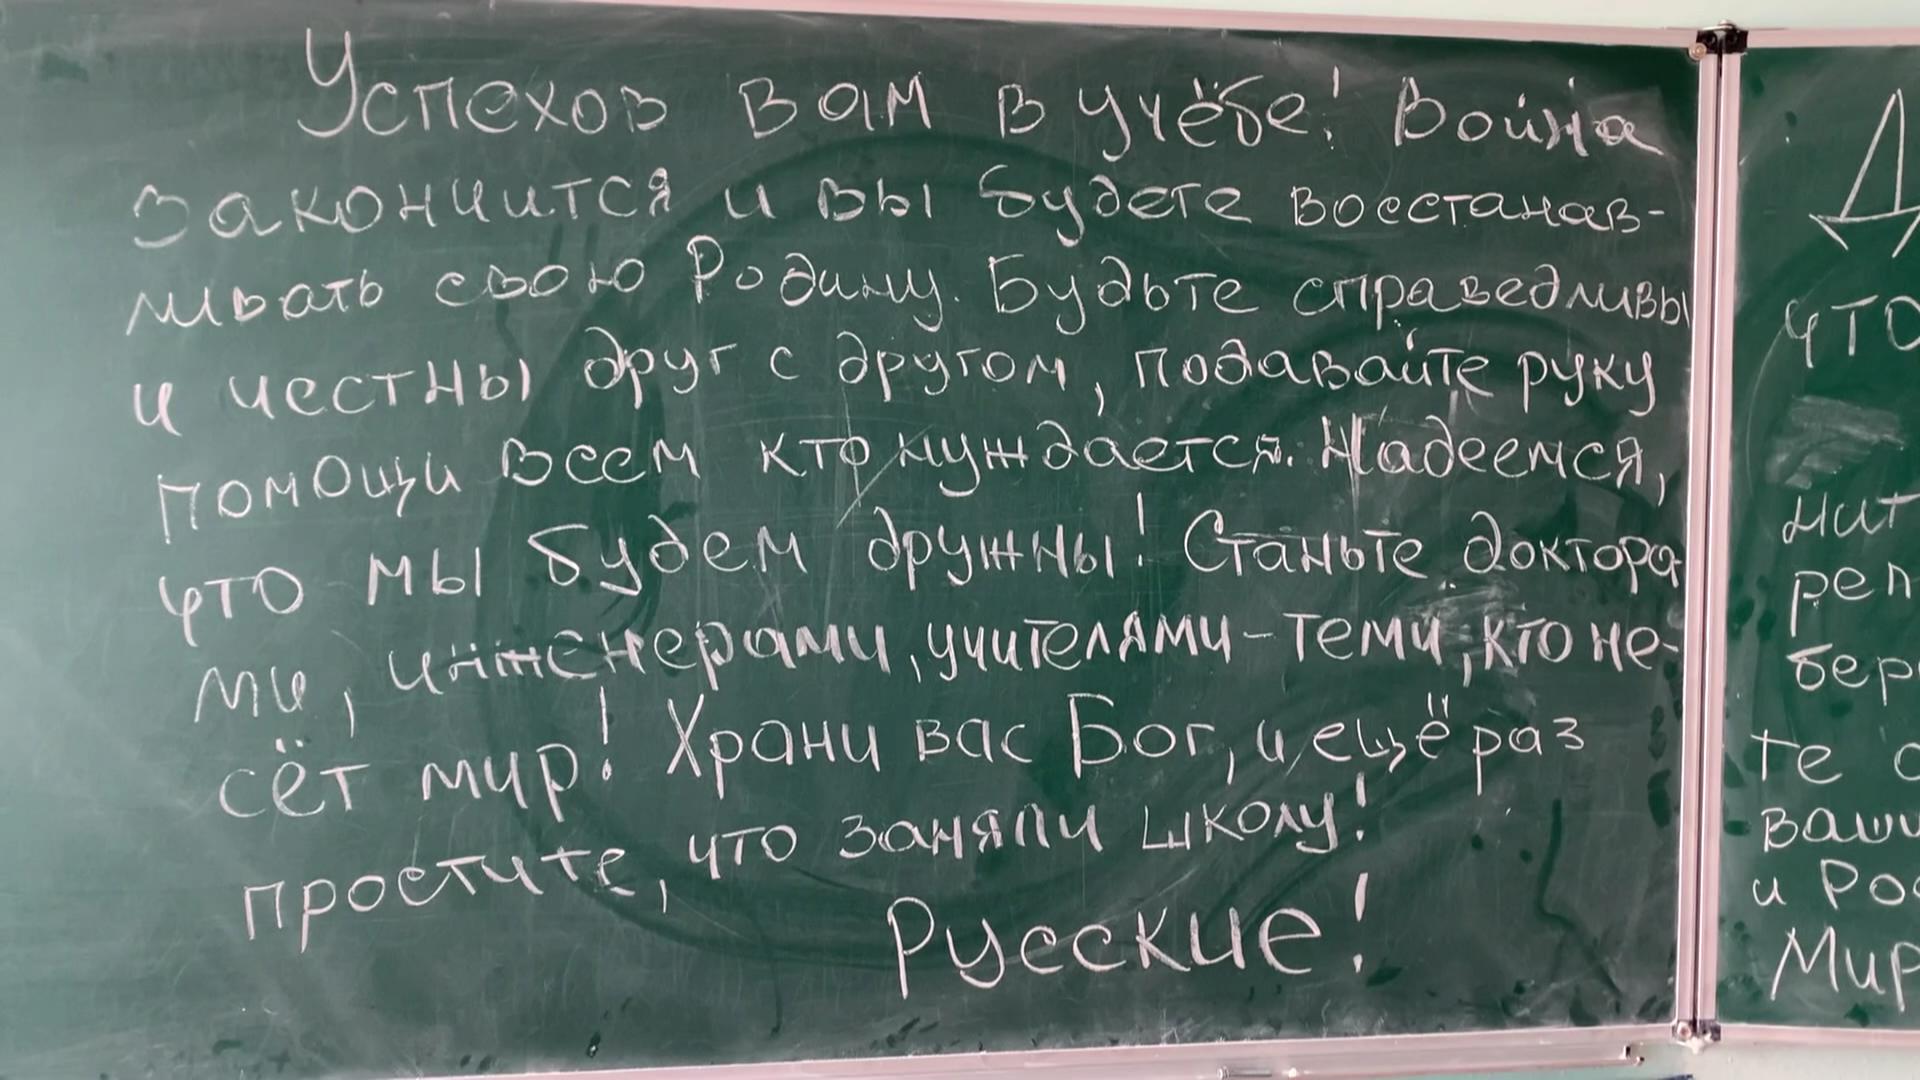 Успехов вам в учёбе! Война
закончится и вы будете восстанав-
ливать свою Родину. Будьте справедливы
и честны друг с другом, подавайте руку
помощи всем кто нуждается. Надеемся,
что мы будем дружны! Станьте доктора
ми, инженерами, учителями - теми, кто не-
сёт мир! Храни вас Бог, и ещё раз
простите, что заняли школу!
Русские!
Д
что
нит
реп
бер
те о
ваши
и Рос
Мир